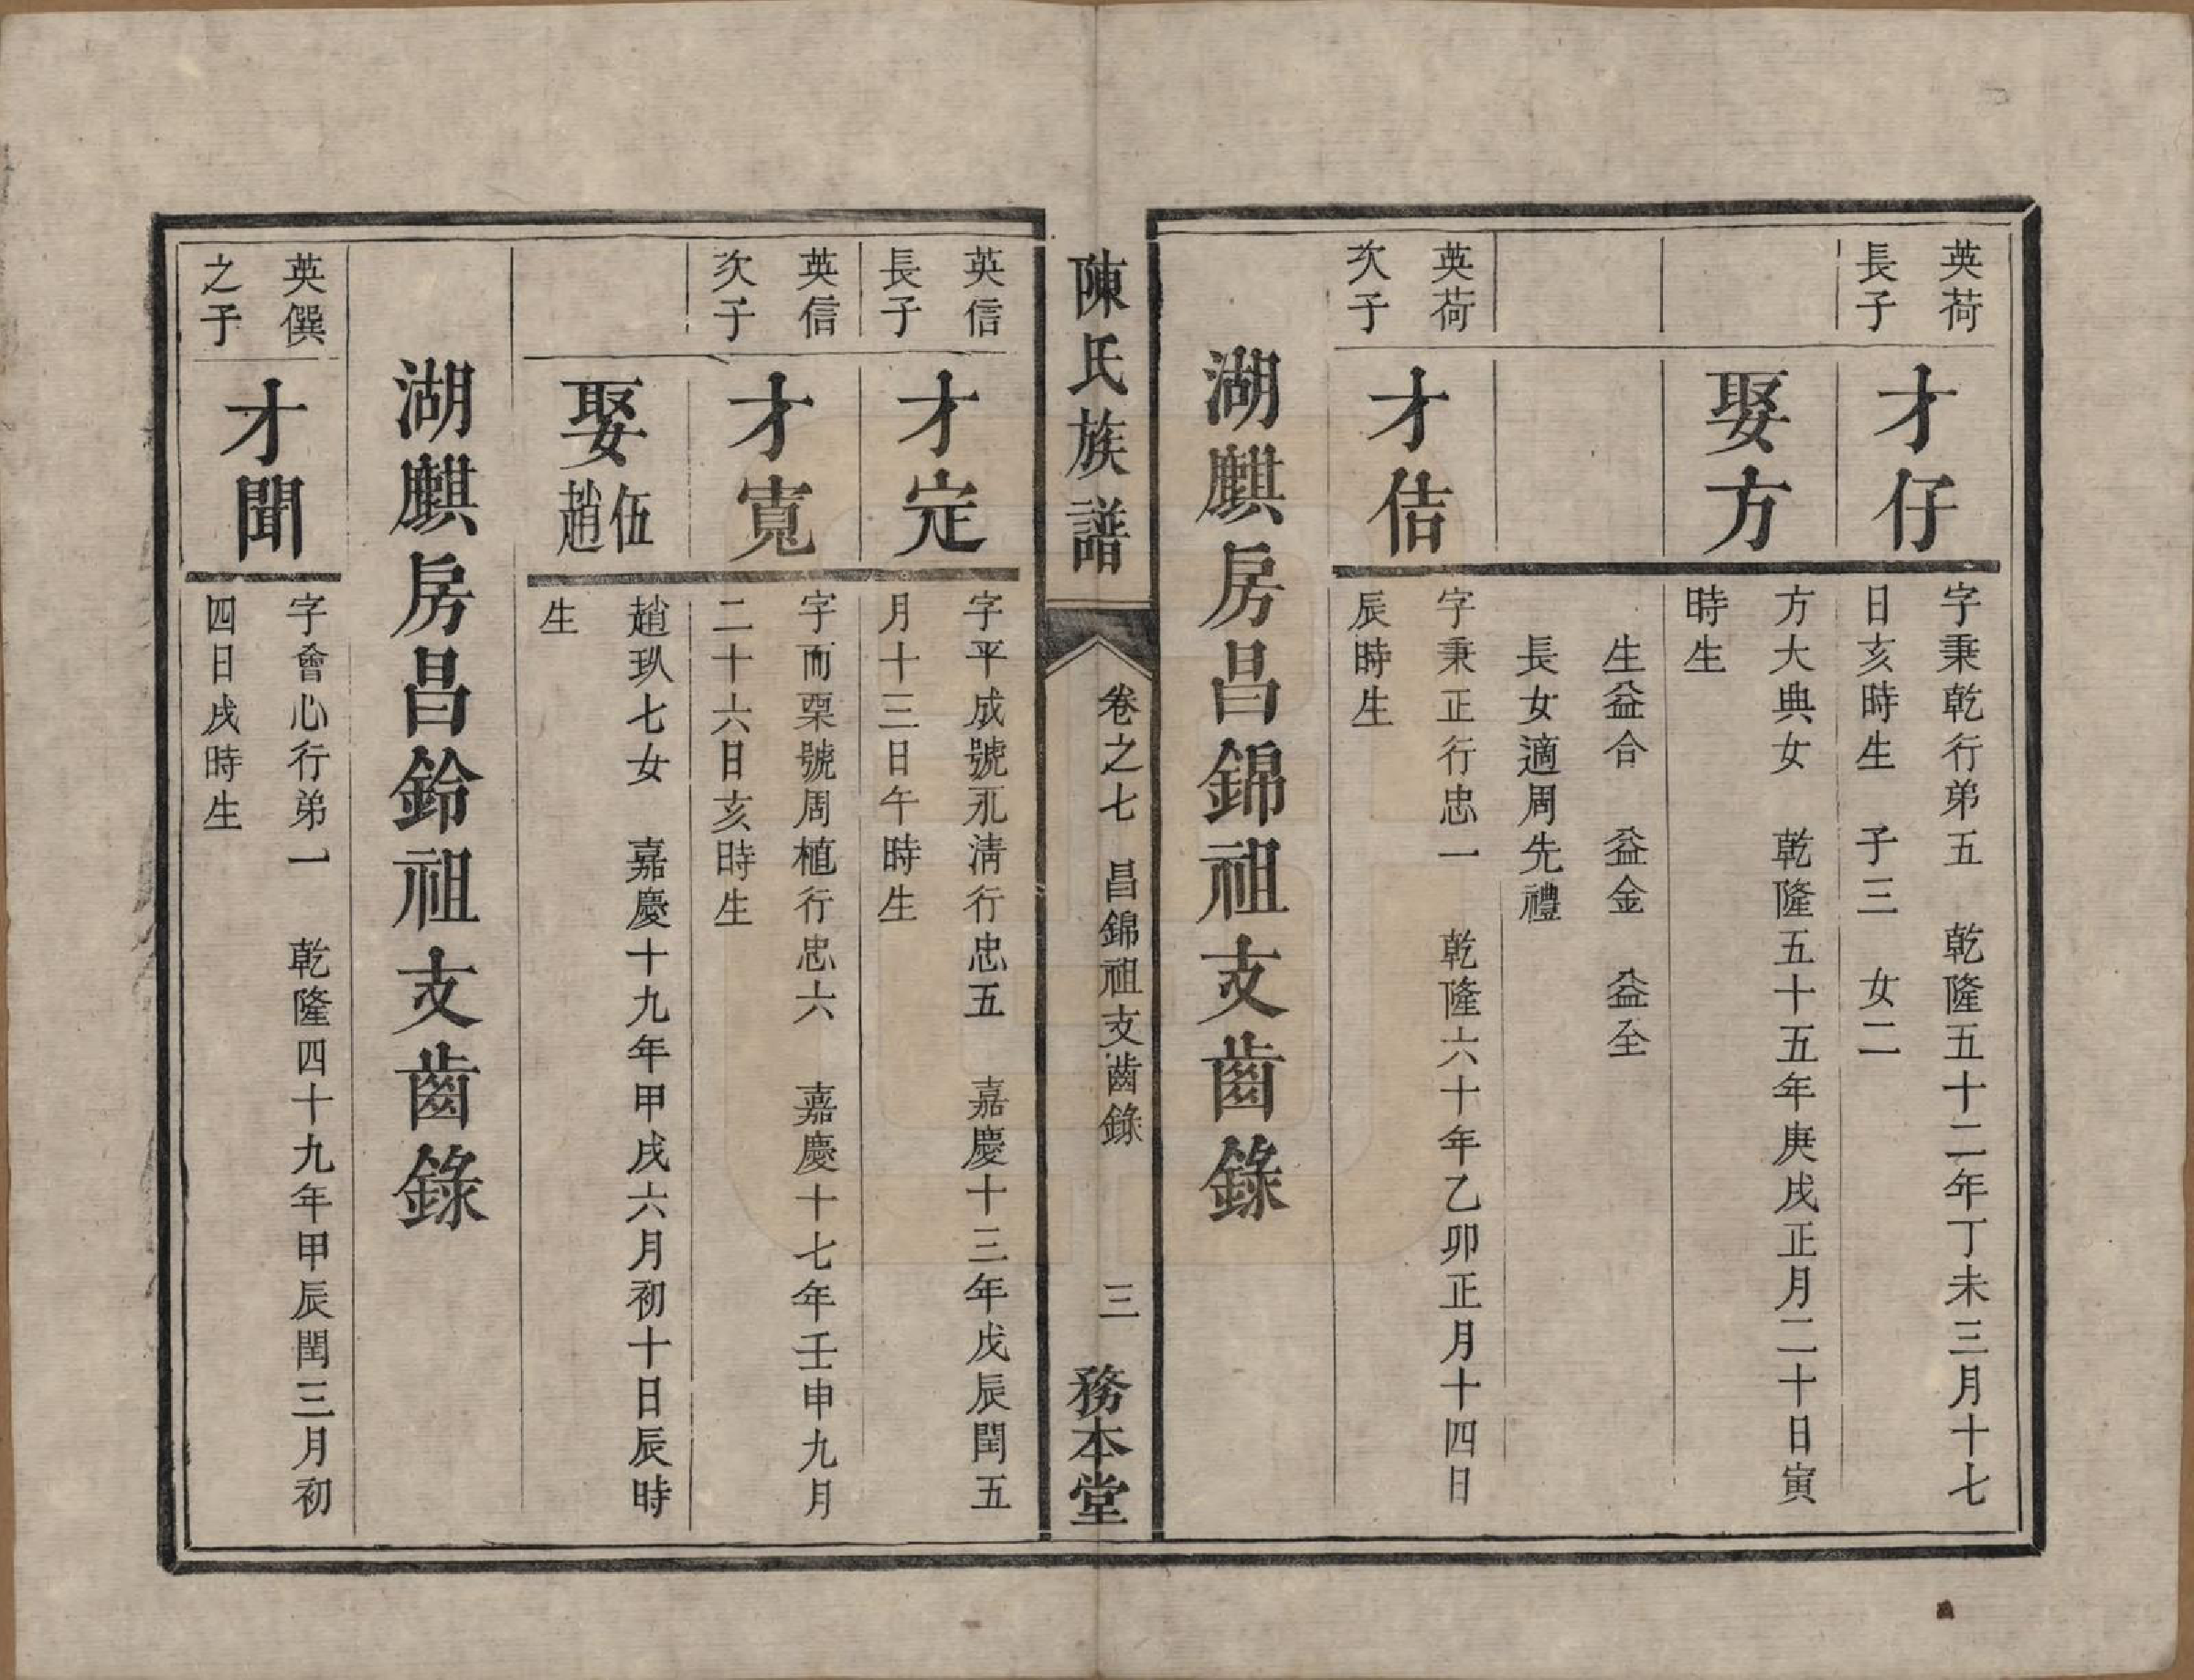 英荷
長子
才仔
字秉乾行弟五　乾隆五十二年丁未三月十七
日亥時生　子三　女二
娶方
方大典女　乾隆五十五年庚戌正月二十日寅
時生
生益合　益金　益至
長女適周先禮
英荷
次子
才佶
字秉正行忠一　乾隆六十年乙卯正月十四日
辰時生
湖麒房昌錦祖支齒錄
陳氏族譜
卷之七　昌錦祖支齒錄
三
務本堂
英信
長子
才定
字平成號永清行忠五　嘉慶十三年戊辰閏五
月十三日午時生
英信
次子
才寬
字而栗號周植行忠六　嘉慶十七年壬申九月
二十六日亥時生
娶伍趙
趙玖七女　嘉慶十九年甲戌六月初十日辰時
生
湖麒房昌鈴祖支齒錄
英僎
之子
才聞
字會心行弟一　乾隆四十九年甲辰閏三月初
四日戌時生